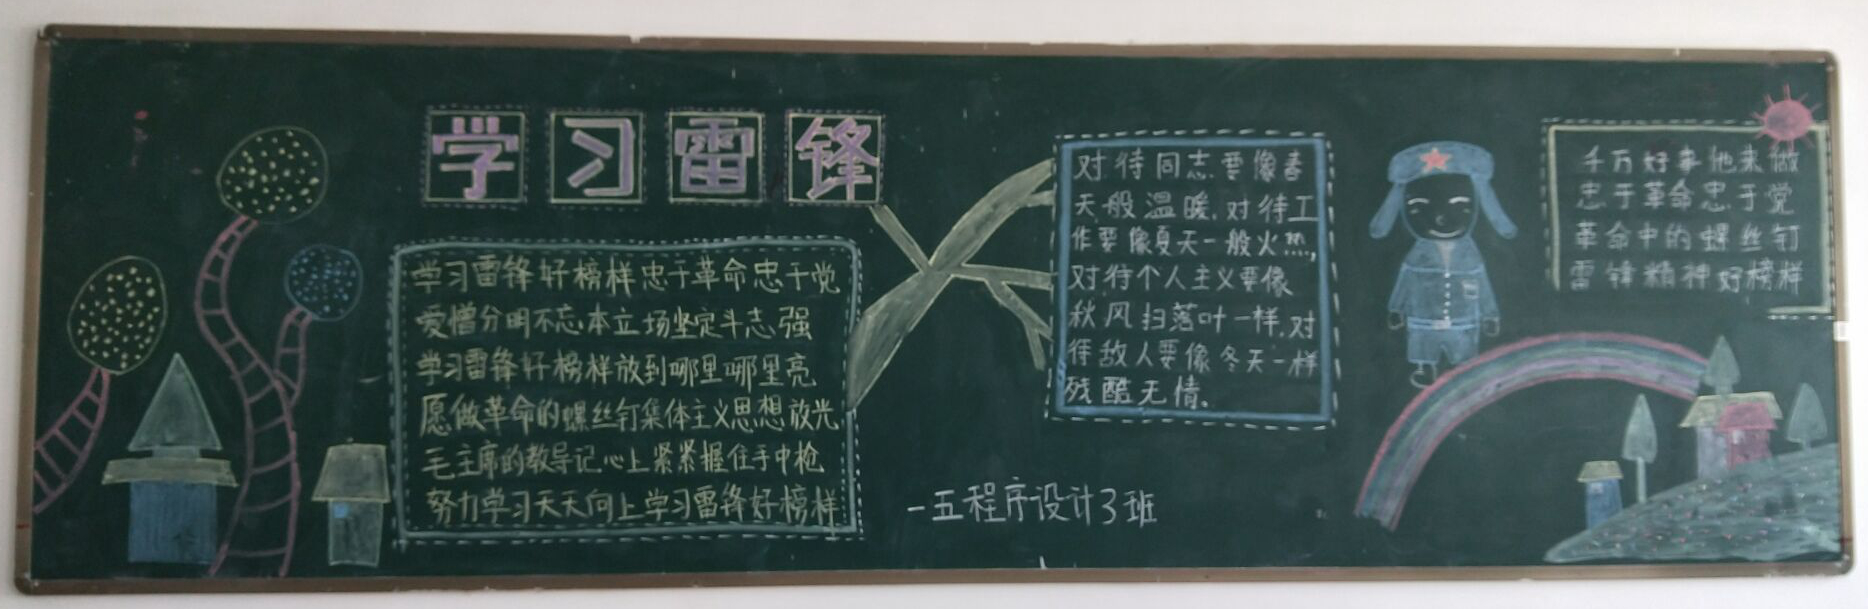 学习雷锋
学习雷锋好榜样忠于革命忠于党
爱憎分明不忘本立场坚定斗志强
学习雷锋好榜样放到哪里哪里亮
愿做革命的螺丝钉集体主义思想放光
毛主席的教导记心上紧紧握住手中枪
努力学习天天向上学习雷锋好榜样
对待同志要像春
天般温暖,对待工
作要像夏天一般火热,
对待个人主义要像
秋风扫落叶一样,对
待敌人要像冬天一样
残酷无情。
一五程序设计3班
千万好事他来做
忠于革命忠于党
革命中的螺丝钉
雷锋精神好榜样